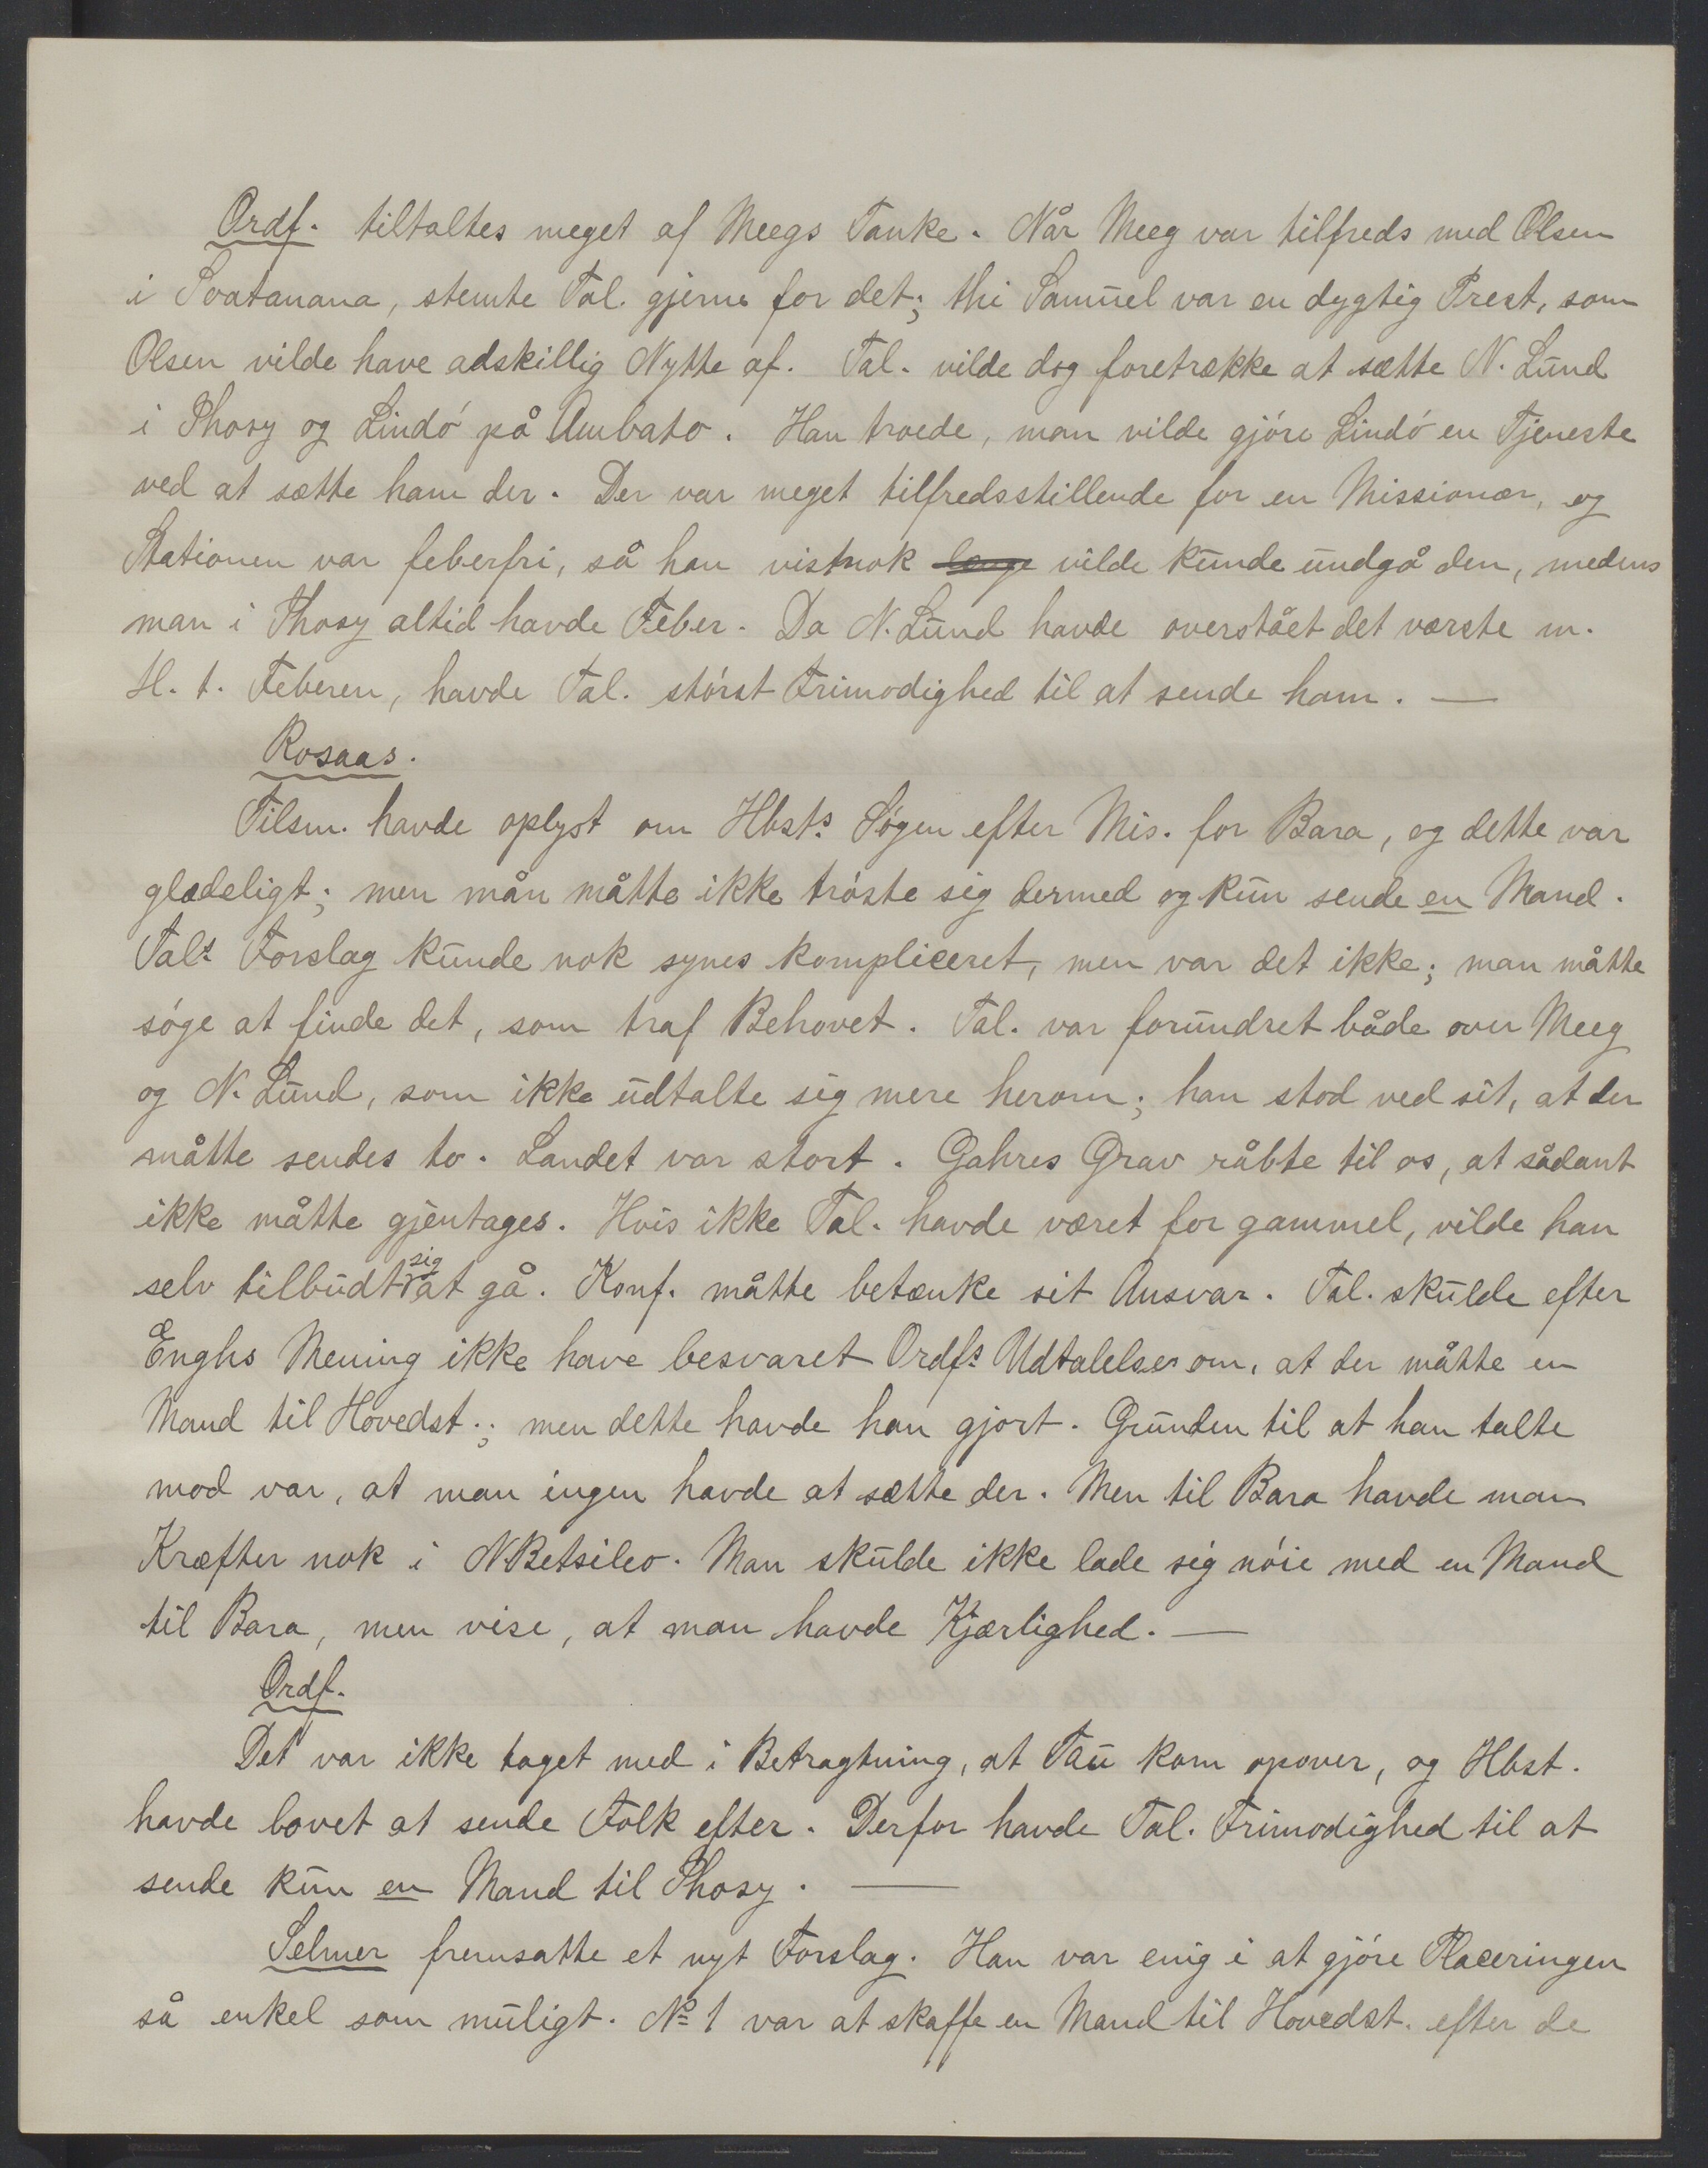 Ordf. tiltaltes meget af Meegs Tanke. Når Meeg var tilfreds med Olsen
i Soatanana, stemte Tal. gjerne for det; thi Samuel var en dygtig Prest, som
Olsen vilde have adskillig Nytte af. Tal. vilde dog foretrække at sætte N. Lund
i Ihosy og Lindö på Ambato. Han troede, man vilde gjöre Lindö en Tjeneste
ved at sætte ham der. Der var meget tilfredsstillende for en Missionær, og
Stationen var feberfri, så han vistnok længe vilde kunde undgå den, medens
man i Ihosy altid havde Feber. Da N. Lund havde overstået det værste m.
H. t. Feberen, havde Tal. störst Frimodighed til at sende ham. —
Rosaas.
Tilsm. havde oplyst om Hbsts Sögen efter Mis. for Bara, og dette var
glædeligt; men mån måtte ikke tröste sig dermed og kun sende en Mand.
Tals Forslag kunde nok synes kompliceret, men var det ikke; man måtte
söge at finde det, som traf Behovet. Tal. var forundret både over Meeg
og N. Lund, som ikke udtalte sig mere herom; han stod ved sit, at der
måtte sendes to. Landet var stort. Gahres Grav råbte til os, at sådant
ikke måtte gjentages. Hvis ikke Tal. havde været for gammel, vilde han
selv tilbudt sig at gå. Konf. måtte betænke sit Ansvar. Tal. skulde efter
Enghs Mening ikke have besvaret Ordfs Udtalelser om, at der måtte en
Mand til Hovedst.; men dette havde han gjort. Grunden til at han talte
mod var, at man ingen havde at sætte der. Men til Bara havde man
Kræfter nok i N Betsileo. Man skulde ikke lade sig nöie med en Mand
til Bara, men vise, at man havde Kjærlighed. —
Ordf.
Det var ikke taget med i Betragtning, at Tau kom opover, og Hbst.
havde lovet at sende Folk efter. Derfor havde Tal. Frimodighed til at
sende kun en Mand til Ihosy. —
Selmer fremsatte et nyt Forslag. Han var enig i at gjöre Placeringen
så enkel som muligt. No 1 var at skaffe en Mand til Hovedst. efter de